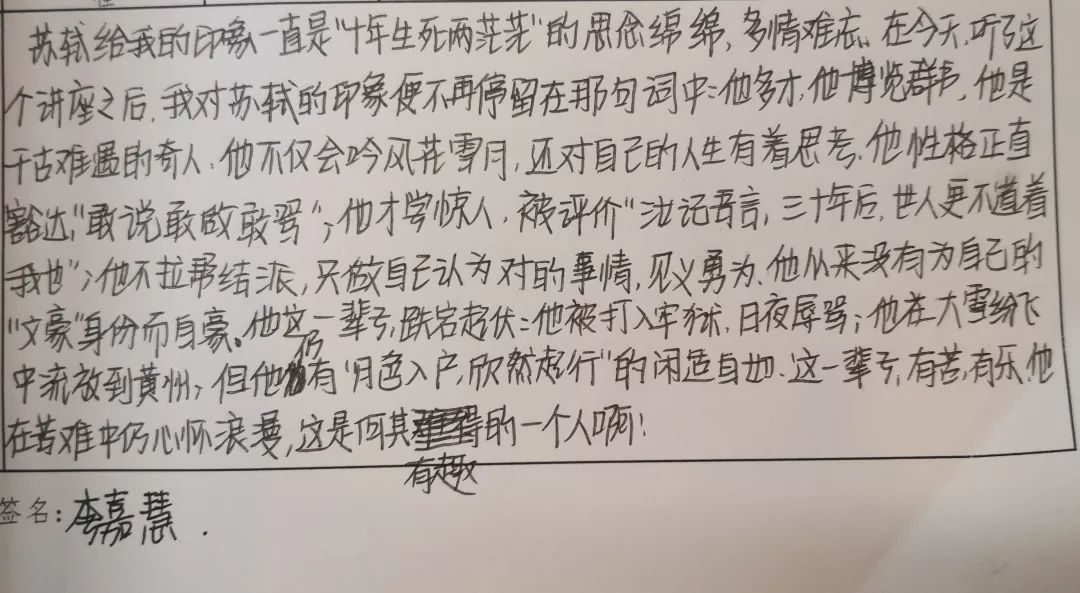 苏轼给我的印象一直是"十年生死两茫茫"的思念绵绵,多情难忘。在今天,听了这
个讲座之后,我对苏轼的印象便不再停留在那句词中:他多才,他博览群书,他是
千古难遇的奇人.他不仅会吟风花雪月,还对自己的人生有着思考.他性格正直
豁达,"敢说敢做敢骂";他才学惊人,被评价"汝记吾言,三十年后,世人更不道着
我也";他不拉帮结派,只做自己认为对的事情,见义勇为.他从来没有为自己的
"文豪"身份而自豪。他这一辈子,跌宕起伏:他被打入牢狱,日夜辱骂;他在大雪纷飞
中流放到黄州;但他仍有"月色入户,欣然起行"的闲适自如.这一辈子,有苦,有乐.他
在苦难中仍心怀浪漫,这是何其有趣的一个人啊!
签名:李嘉慧.